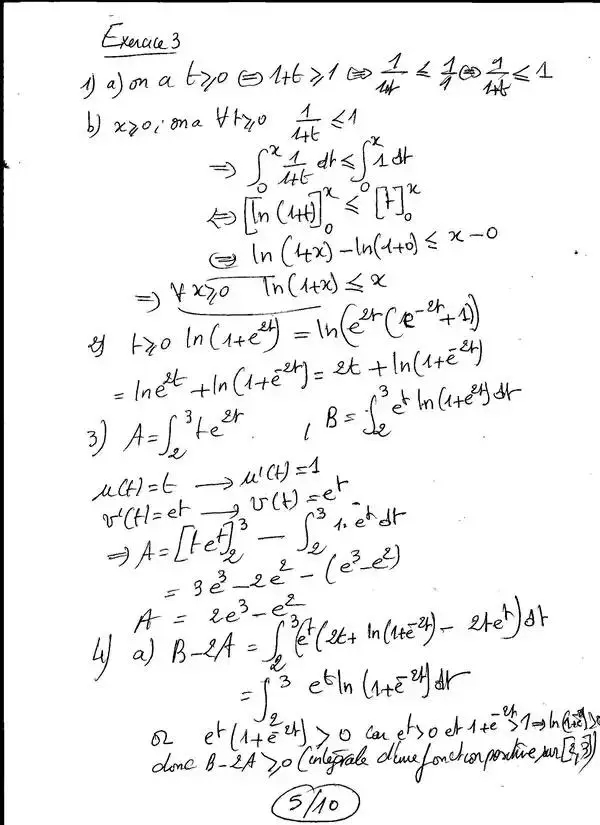 Exercice 3
1) a) on a t⩾0 ⇔ 1+t ⩾ 1 ⇔ 1/(1+t) ≤ 1/1 ⇔ 1/(1+t) ≤ 1
b) x⩾0, on a ∀t⩾0 1/(1+t) ≤ 1
⇒ ∫₀ˣ 1/(1+t) dt ≤ ∫₀ˣ 1 dt
⇔ [ln(1+t)]₀ˣ ≤ [t]₀ˣ
⇔ ln(1+x) − ln(1+0) ≤ x−0
⇒ ∀x⩾0 ln(1+x) ≤ x
2) t⩾0 ln(1+e^{2t}) = ln(e^{2t}(e^{-2t}+1))
= ln e^{2t} + ln(1+e^{-2t}) = 2t + ln(1+e^{-2t})
3) A = ∫₂³ t e^{2t} , B = ∫₂³ e^t ln(1+e^{2t}) dt
u(t) = t → u'(t) = 1
v'(t) = e^t → v(t) = e^t
⇒ A = [t e^t]₂³ − ∫₂³ 1·e^t dt
= 3e³ − 2e² − (e³−e²)
A = 2e³ − e²
4) a) B−2A = ∫₂³ (e^t(2t + ln(1+e^{-2t}) − 2te^t) dt
= ∫₂³ e^t ln(1+e^{-2t}) dt
or e^t(1+e^{-2t}) > 0 car e^t>0 et 1+e^{-2t}>1 ⇒ ln(1+e^{-2t})>0
donc B−2A ⩾ 0 (intégrale d'une fonction positive sur [2,3])
5/10